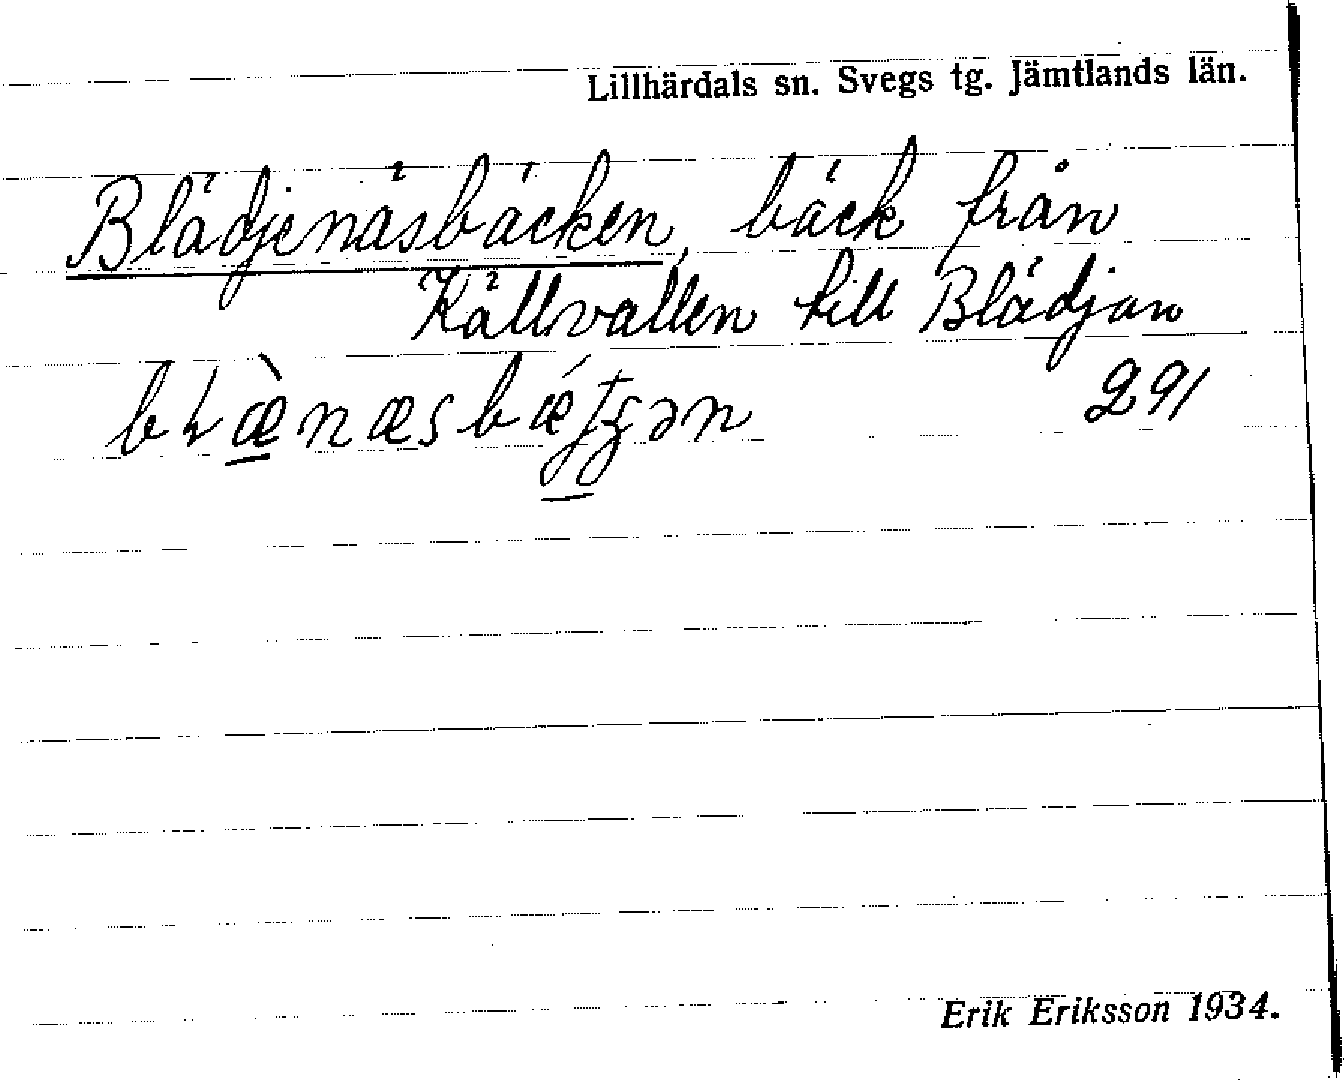 Lillhärdals sn. Svegs tg. Jämtlands län.
Blädjenäsbäcken, bäck från
Källvallen till Blädjan
291
Erik Eriksson 1934.